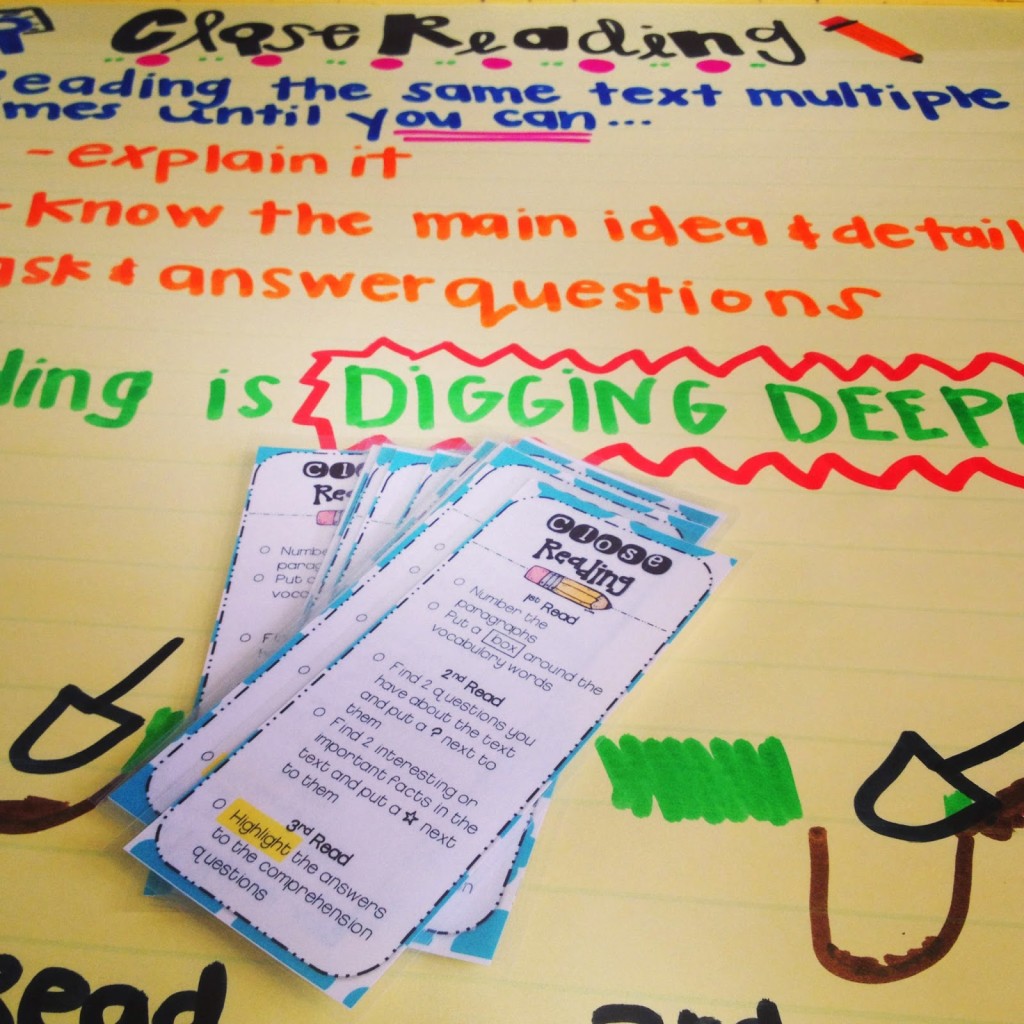 Close Reading
eading the same text multiple
mes until you can...
- explain it
- know the main idea & detail
ask & answer questions
ding is DIGGING DEEPE
Close
Reading
1st Read
Number the
paragraphs
Put a box around the
vocabulary words
2nd Read
Find 2 questions you
have about the text
and put a ? next to
them
Find 2 interesting or
important facts in the
text and put a ☆ next
to them
3rd Read
Highlight the answers
to the comprehension
questions
Clo
Re
Numbe
parag
Put a
voca
Read